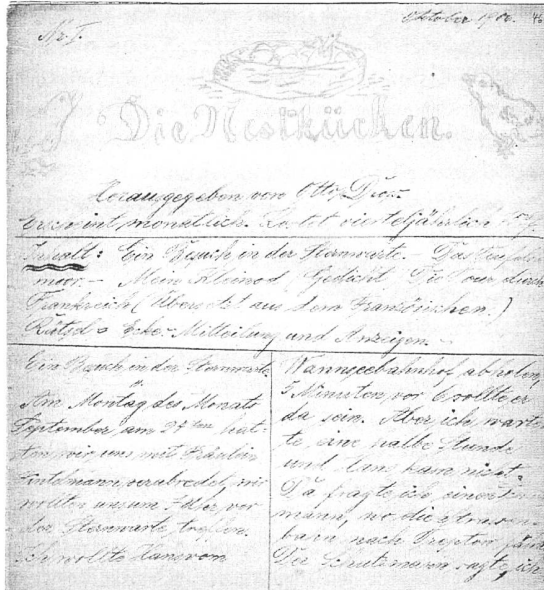 Nr. I. Oktober 19
Die Nestküchen.
Herausgegeben von Otto
Erscheint monatlich. Kostet vierteljährlich
Inhalt: Ein Besuch in der Sternwarte. – Das Teufels
moor. – Mein Kleinod (Gedicht) Die durch
Frankreich (Übersetzt aus dem Französischen.)
Rätsel Ecke – Mitteilung und Anzeigen. –
Ein Besuch in der Sternwarte.
Am Montag des Monats
September am 27ten hat-
ten wir uns mit Fräulein
verabredet, wir
wollten uns um Uhr vor
der Sternwarte treffen.
Ich wollte Hans vom
Wannseebahnhof abholen,
5 Minuten vor 6 sollte er
da sein. Aber ich warte-
te eine halbe Stunde
und Hans kam nicht.
Da fragte ich einen
mann, wo die Strassen-
bahn nach Treptow
Der Schutzmann sagte, ich